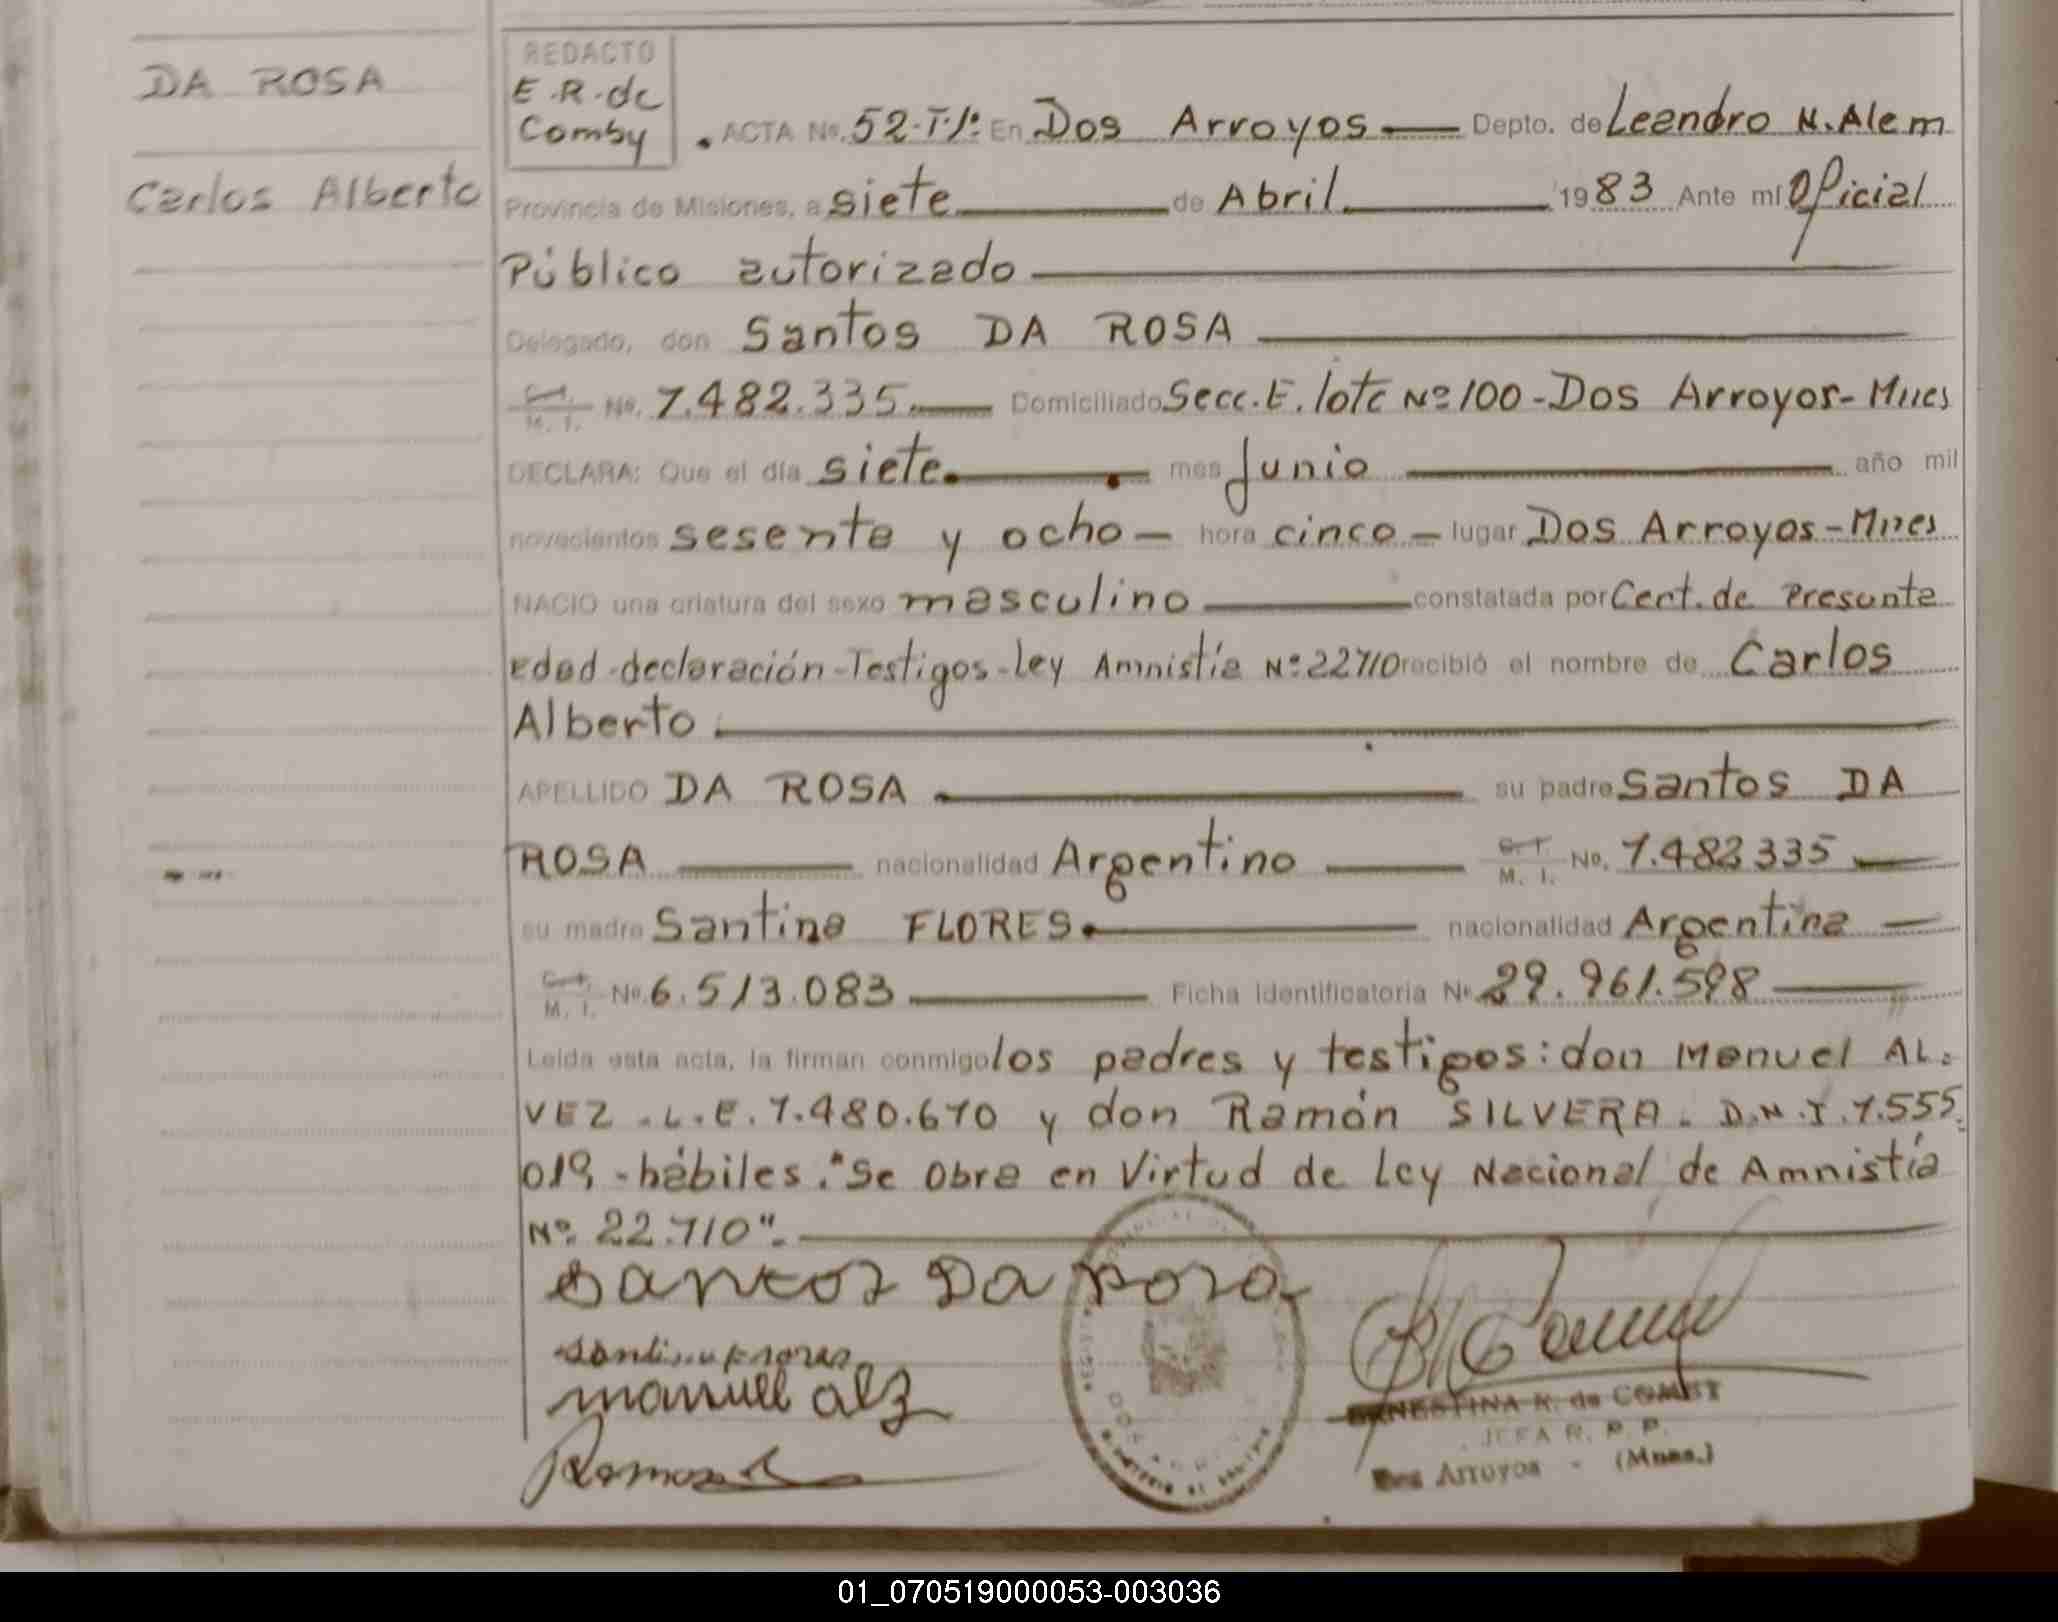 DA ROSA
Carlos Alberto
REDACTO
E.R. de
Comby
ACTA No. 52-T-1º En Dos Arroyos Depto. de Leandro N. Alem
Provincia de Misiones, a siete de Abril 1983 Ante mí Oficial
Público autorizado
Delegado, don Santos DA ROSA
C.I. M. I. No. 7.482.335 Domiciliado Secc. E. lote Nº 100 - Dos Arroyos - Mnes
DECLARA: Que el día siete mes Junio año mil
novecientos sesenta y ocho - hora cinco - lugar Dos Arroyos - Mnes
NACIO una criatura del sexo masculino constatada por Cert. de Presunta
edad - declaración - Testigos - Ley Amnistía Nº 22710 recibió el nombre de Carlos
Alberto
APELLIDO DA ROSA su padre Santos DA
ROSA nacionalidad Argentino C.I. M. I. No. 7.482335
su madre Santina FLORES nacionalidad Argentina
C.I. M. I. No. 6.513.083 Ficha identificatoria No. 29.961.598
Leída esta acta, la firman conmigo los padres y testigos: don Manuel AL=
VEZ - L.E. 7.480.670 y don Ramón SILVERA - D.N.I. 7.555.
019 - hábiles. "Se Obra en Virtud de Ley Nacional de Amnistía
Nº 22.710".
Santos Da Rosa
manuel alz
ERNESTINA R. de COMBY
JEFA R. P. P.
Dos Arroyos - (Mnes.)
01_070519000053-003036